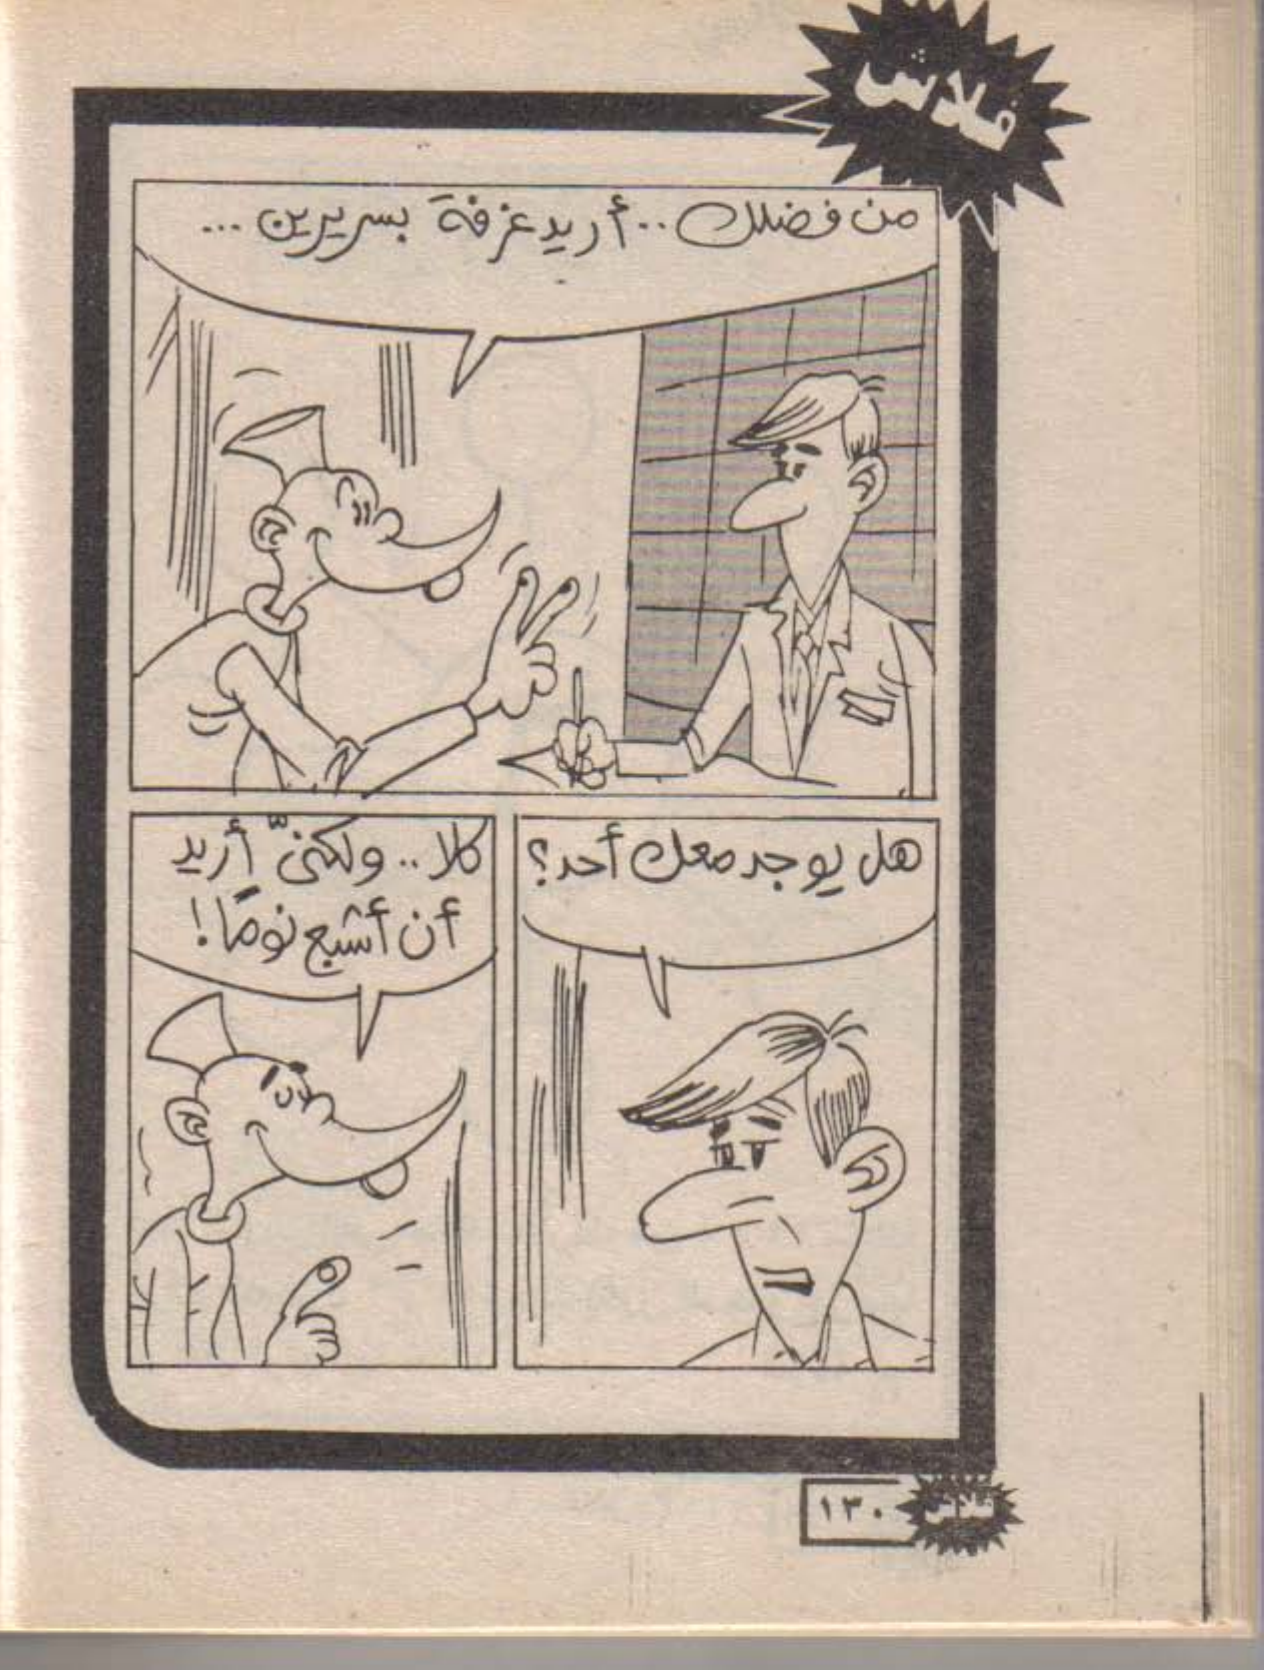 فلاش
من فضلك .. أريد غرفة بسريرين ...
هل يوجد معك أحد؟
كلا .. ولكنّى أريد
أن أشبع نومًا!
١٣٠
فلاش